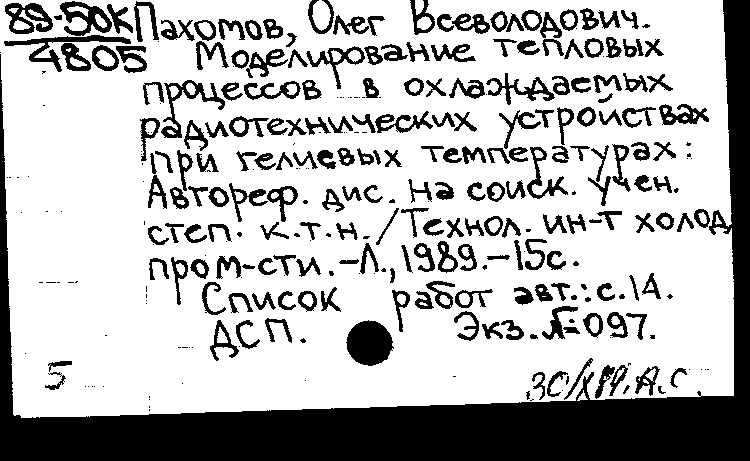 89-50К Пахомов, Олег Всеволодович.
4805 Моделирование тепловых
процессов в охлаждаемых
радиотехнических устройствах
при гелиевых температурах:
Автореф. дис. на соиск. учен.
степ. к.т.н. / Технол. ин-т холод.
пром-сти. -Л., 1989.-15с.
Список работ авт.: с.14.
ДСП. Экз. № 097.
5 30/X 89. А.С.